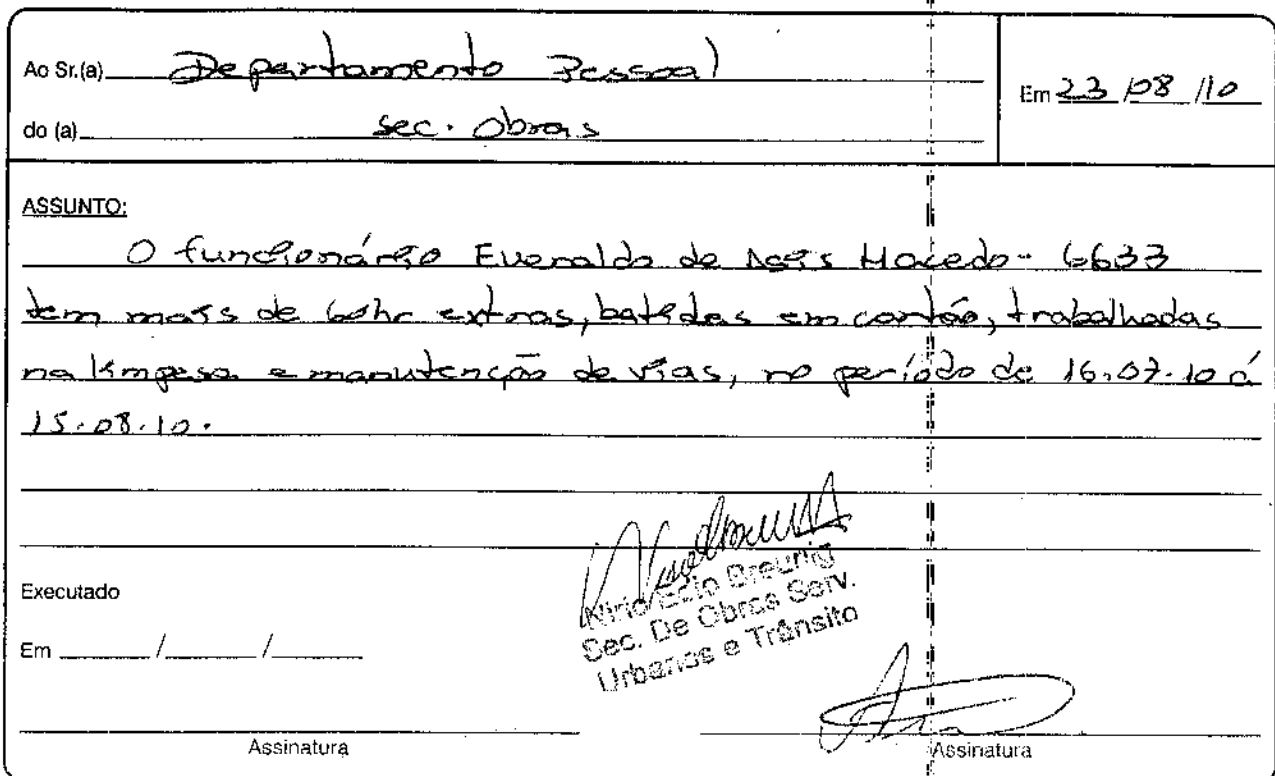 Ao Sr.(a) Departamento Pessoal
Em 23/08/10
do (a) sec. Obras
ASSUNTO:
O funcionário Everaldo de Assis Macedo - 6633
tem mais de 60hr extras, batidas em cartão, trabalhadas
na limpesa e manutenção de vias, no período de 16.07.10 á
15.08.10.
Executado
Em ____/____/____
Breunig
Sec. De Obras Serv.
Urbanos e Trânsito
Assinatura
Assinatura